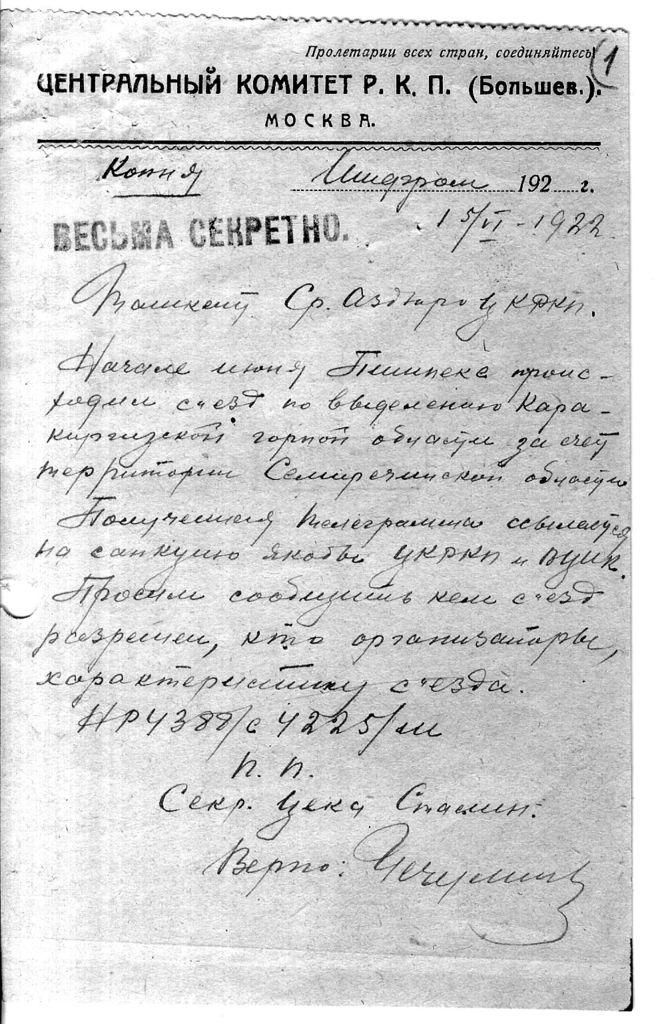 Пролетарии всех стран, соединяйтесь!
1
ЦЕНТРАЛЬНЫЙ КОМИТЕТ Р. К. П. (Большев.).
МОСКВА.
Копия
Шифром 192 г.
ВЕСЬМА СЕКРЕТНО.
15/VI-1922
Ташкент Ср. Азбюро ЦКРКП.
Начале июня Пишпеке проис-
ходил с'езд по выделению Кара-
киргизской горной области за счет
территории Семиреченской области
Полученная телеграмма ссылается
на санкцию якобы ЦКРКП и ВЦИК.
Просим сообщить кем с'езд
разрешен, кто организаторы,
характеристику с'езда.
НР4388/с 4225/ш
п. п.
Секр. Цека Сталин.
Верно: